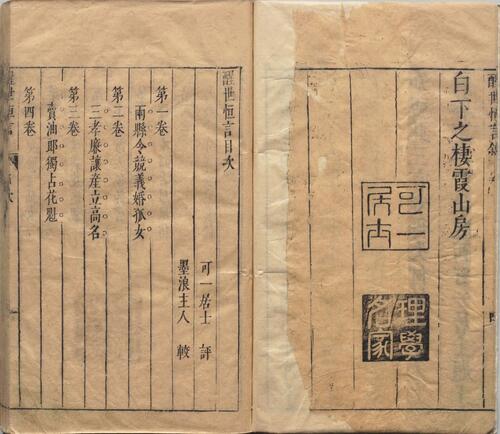 醒世恒言敘
白下之棲霞山房
可一居士
理學名家
醒世恒言目次
可一居士 評
墨浪主人 較
第一卷
兩縣令競義婚孤女
第二卷
三孝廉讓產立高名
第三卷
賣油郎獨占花魁
第四卷
醒世恒言